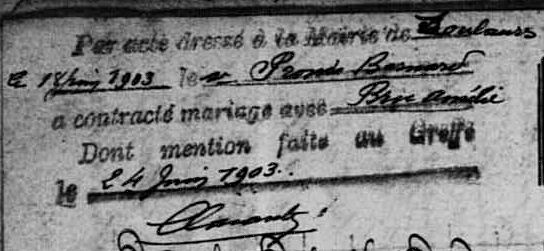 Par acte dressé à la Mairie de Toulouse
le 18 Juin 1903 le sr Pronès Bernard
a contracté mariage avec Brye Amélie
Dont mention faite au Greffe
le 24 Juin 1903.